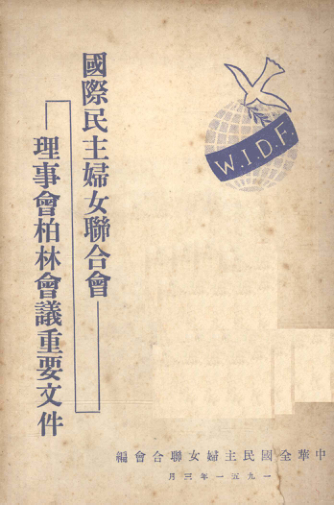 W.I.D.F.
國際民主婦女聯合會
理事會柏林會議重要文件
編會合聯女婦主民國全華中
月三年一五九一